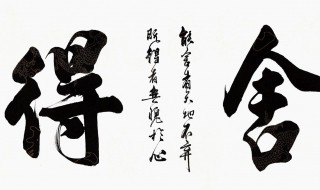 舍
能舍者天地不弃
既得者無愧於心
得